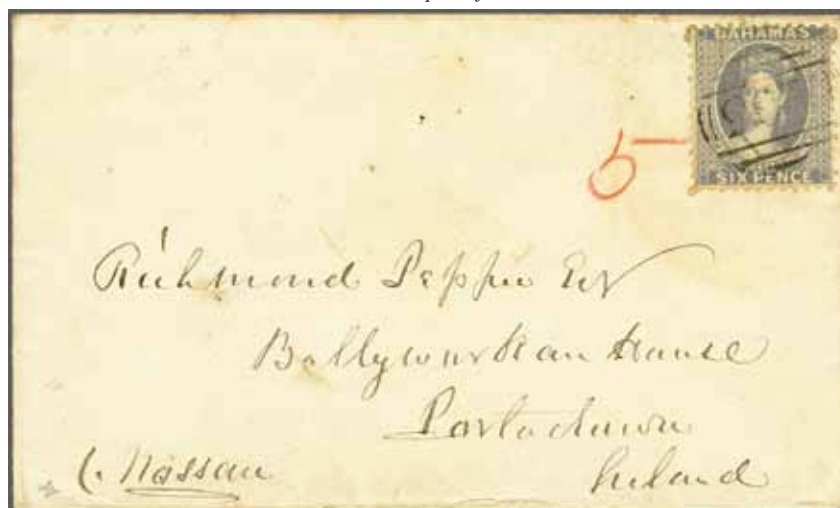 BAHAMAS
SIX PENCE
5
Richmond Pepper Esqr
Ballyworkan House
Portadown
Ireland
Nassau